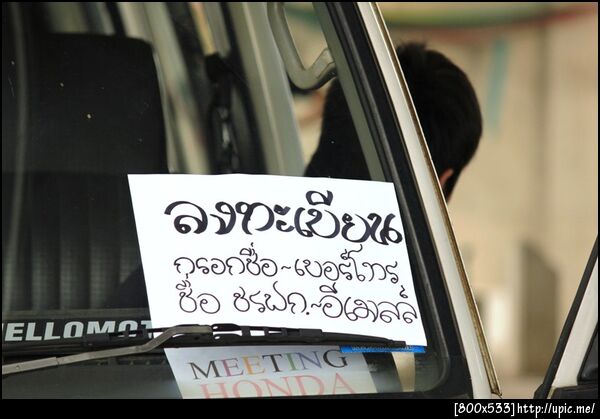 ลงทะเบียน
กรอกชื่อ~เบอร์โทร
ชื่อ ชรมก.~อีเมลล์
MEETING
HONDA
[800x533]http://upic.me/